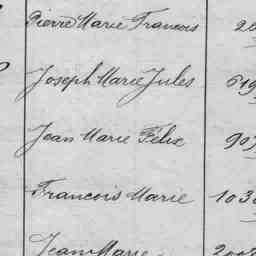 Pierre Marie Francois 20
Joseph Marie Jules 619
Jean Marie Félix 907
Francois Marie 1030
Jean Marie